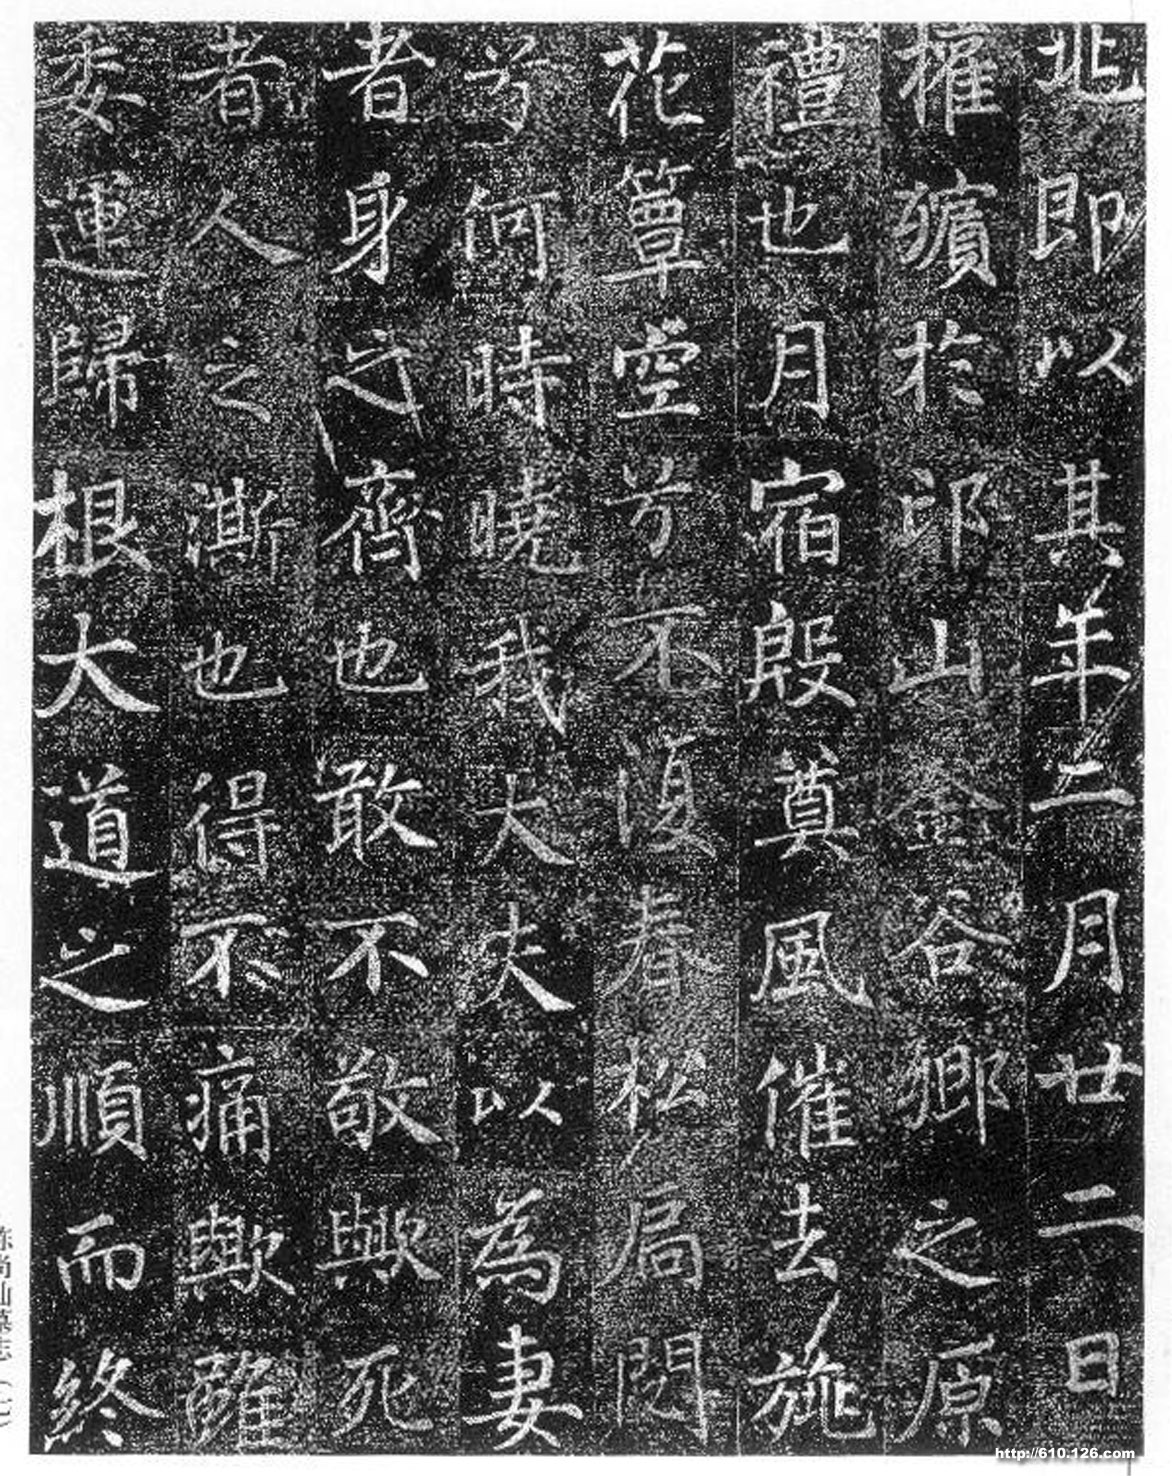 兆即以其年二月廿二日
權殯於邙山金谷鄉之原
禮也月宿殷奠風催去旐
花簟空兮不復春松扃閟
兮何時曉我大夫以為妻
者身之齊也敢不敬歟死
者人之澌也得不痛歟雖
委運歸根大道之順而終
http://610.126.com